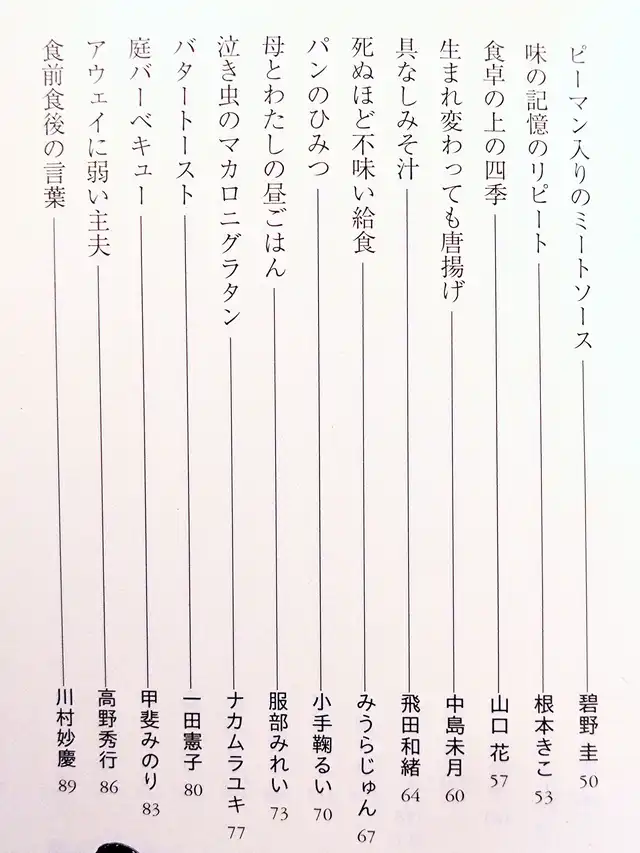 ピーマン入りのミートソース 碧野 圭 50
味の記憶のリピート 根本きこ 53
食卓の上の四季 山口 花 57
生まれ変わっても唐揚げ 中島未月 60
具なしみそ汁 飛田和緒 64
死ぬほど不味い給食 みうらじゅん 67
パンのひみつ 小手鞠るい 70
母とわたしの昼ごはん 服部みれい 73
泣き虫のマカロニグラタン ナカムラユキ 77
バタートースト 一田憲子 80
庭バーベキュー 甲斐みのり 83
アウェイに弱い主夫 高野秀行 86
食前食後の言葉 川村妙慶 89